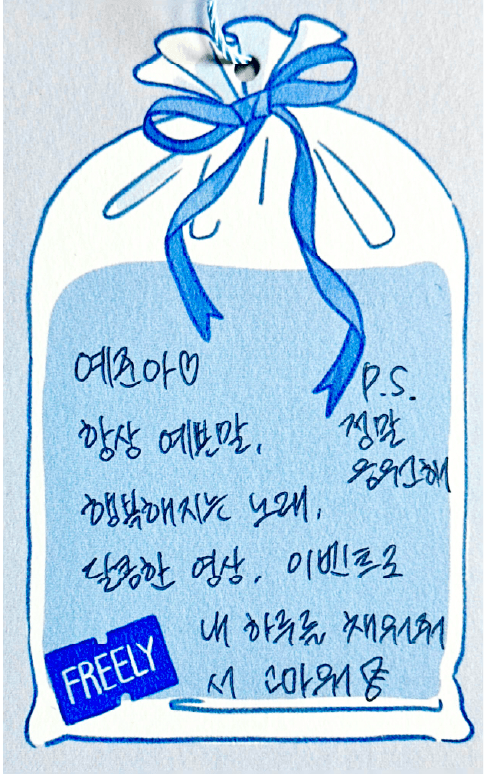 예준아♡
항상 예쁜말,
행복해지는 노래,
달콤한 영상, 이벤트로
내 하루를 채워줘
서 고마워용
P.S.
정말
응원해
FREELY